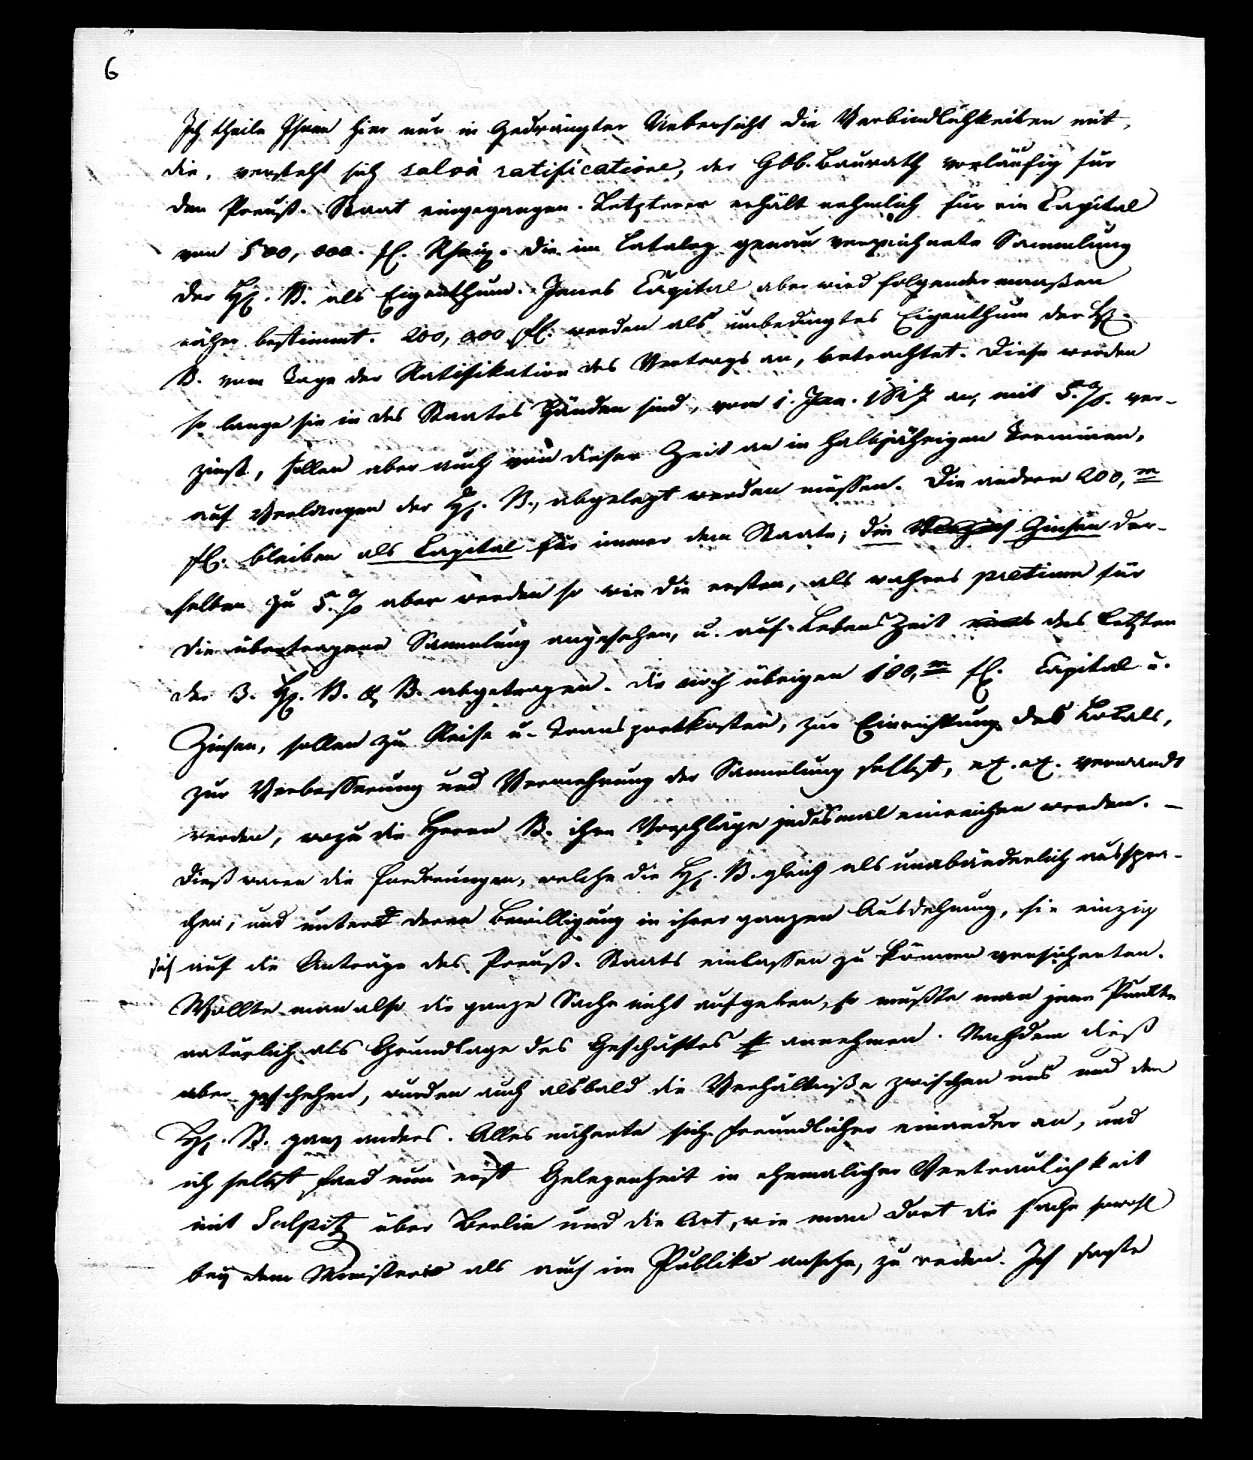 6
Ich theile Ihnen hier nur in gedrängter Uebersicht die Verbindlichkeiten mit,
die, versteht sich salvâ ratificatione, der Ghb. Baurath vorläufig für
den Preuß. Staat eingegangen. Letzterer erhält nehmlich für ein Capital
von 500,000. fl. Rhein. die im Catalog genau verzeichnete Sammlung
der HH. B. als Eigenthum. Jenes Capital aber wird folgendermaaßen
näher bestimmt. 200,000 fl. werden als unbedingtes Eigenthum der HH.
B. vom Tage der Ratifikation des Vertrags an, betrachtet. Diese werden
so lange sie in des Staates Händen sind, vom 1. Jan. 1817 an, mit 5.%. ver-
zinst, sollen aber auch von dieser Zeit an in halbjährigen Terminen,
auf Verlangen der HH. B., abgelegt werden müssen. Die andern 200,m
fl. bleiben als Capital für immer dem Staate; die Zinsen der-
selben zu 5.% aber werden so wie die ersten, als wahres pretium für
die übertragene Sammlung angesehen, u. auf Lebens Zeit des Letzten
der 3. HH. B. & B. abgetragen. Die noch übrigen 100,m fl. Capital u.
Zinsen, sollen zu Reise u. Transportkosten, zur Einrichtung des Lokals,
zur Verbesserung und Vermehrung der Sammlung selbst, etc. etc. verwandt
werden, wozu die Herrn B. ihre Vorschläge jedesmal einreichen werden. —
Dieß waren die Forderungen, welche die HH. B. gleich als unabänderlich ausspra-
chen, und unter deren Bewilligung in ihrer ganzen Ausdehnung, sie einzig
sich auf die Anträge des Preuß. Staats einlassen zu können versicherten.
Wollte man also die ganze Sache nicht aufgeben, so mußte man jene Punkte
natürlich als Grundlage des Geschäftes annehmen. Nachdem dieß
aber geschehen, wurden auch alsbald die Verhältniße zwischen uns und den
HH. B. ganz anders. Alles näherte sich freundlicher einander an, und
ich selbst fand nun erst Gelegenheit in ehemaliger Vertraulichkeit
mit Sulpitz über Berlin und die Art, wie man dort die Sache sowohl
bey dem Ministerio als auch im Publiko ansehe, zu reden. Ich sagte